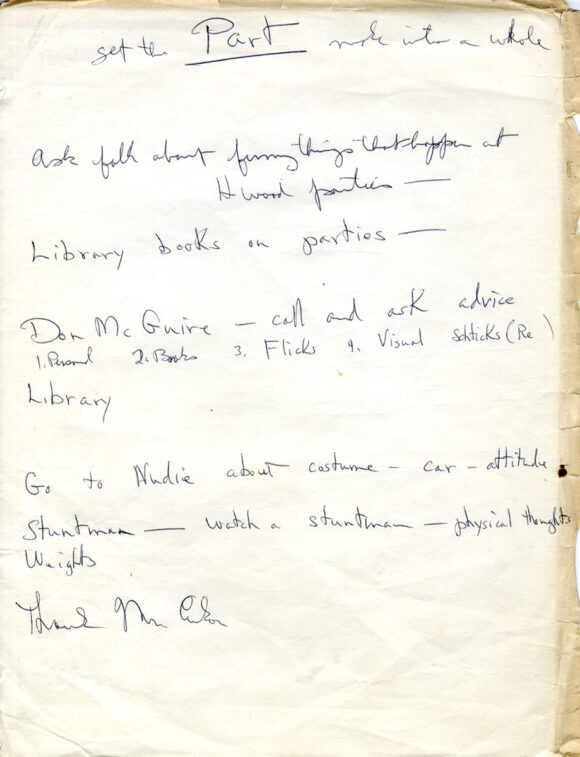 get the Part make into a whole
Ask folk about funny things that happen at
H wood parties —
Library books on parties —
Don McGuire — call and ask advice
1. Personal 2. Books 3. Flicks 4. Visual Schticks (Re )
Library
Go to Nudie about costume – car – attitude
Stuntman — watch a stuntman — physical thoughts
Weights
Thank Mr. Cukor